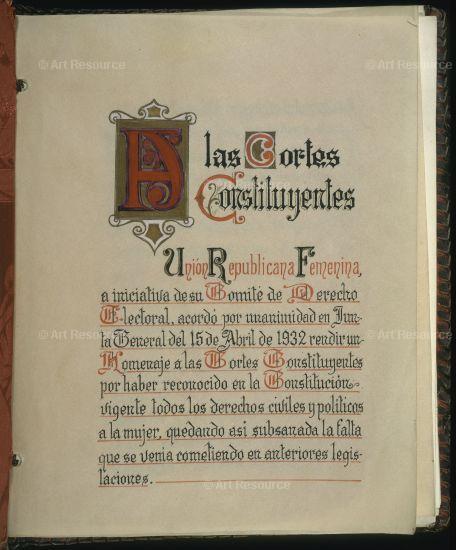 © Art Resource © Art Resource
A las Cortes
Constituyentes
Unión Republicana Femenina,
a iniciativa de su Comité de Derecho
Electoral, acordó por unanimidad en Jun-
ta General del 15 de Abril de 1932 rendir un
Homenaje a las Cortes Constituyentes
por haber reconocido en la Constitución
vigente todos los derechos civiles y políticos
a la mujer, quedando así subsanada la falta
que se venia cometiendo en anteriores legis-
laciones.
© Art Resource